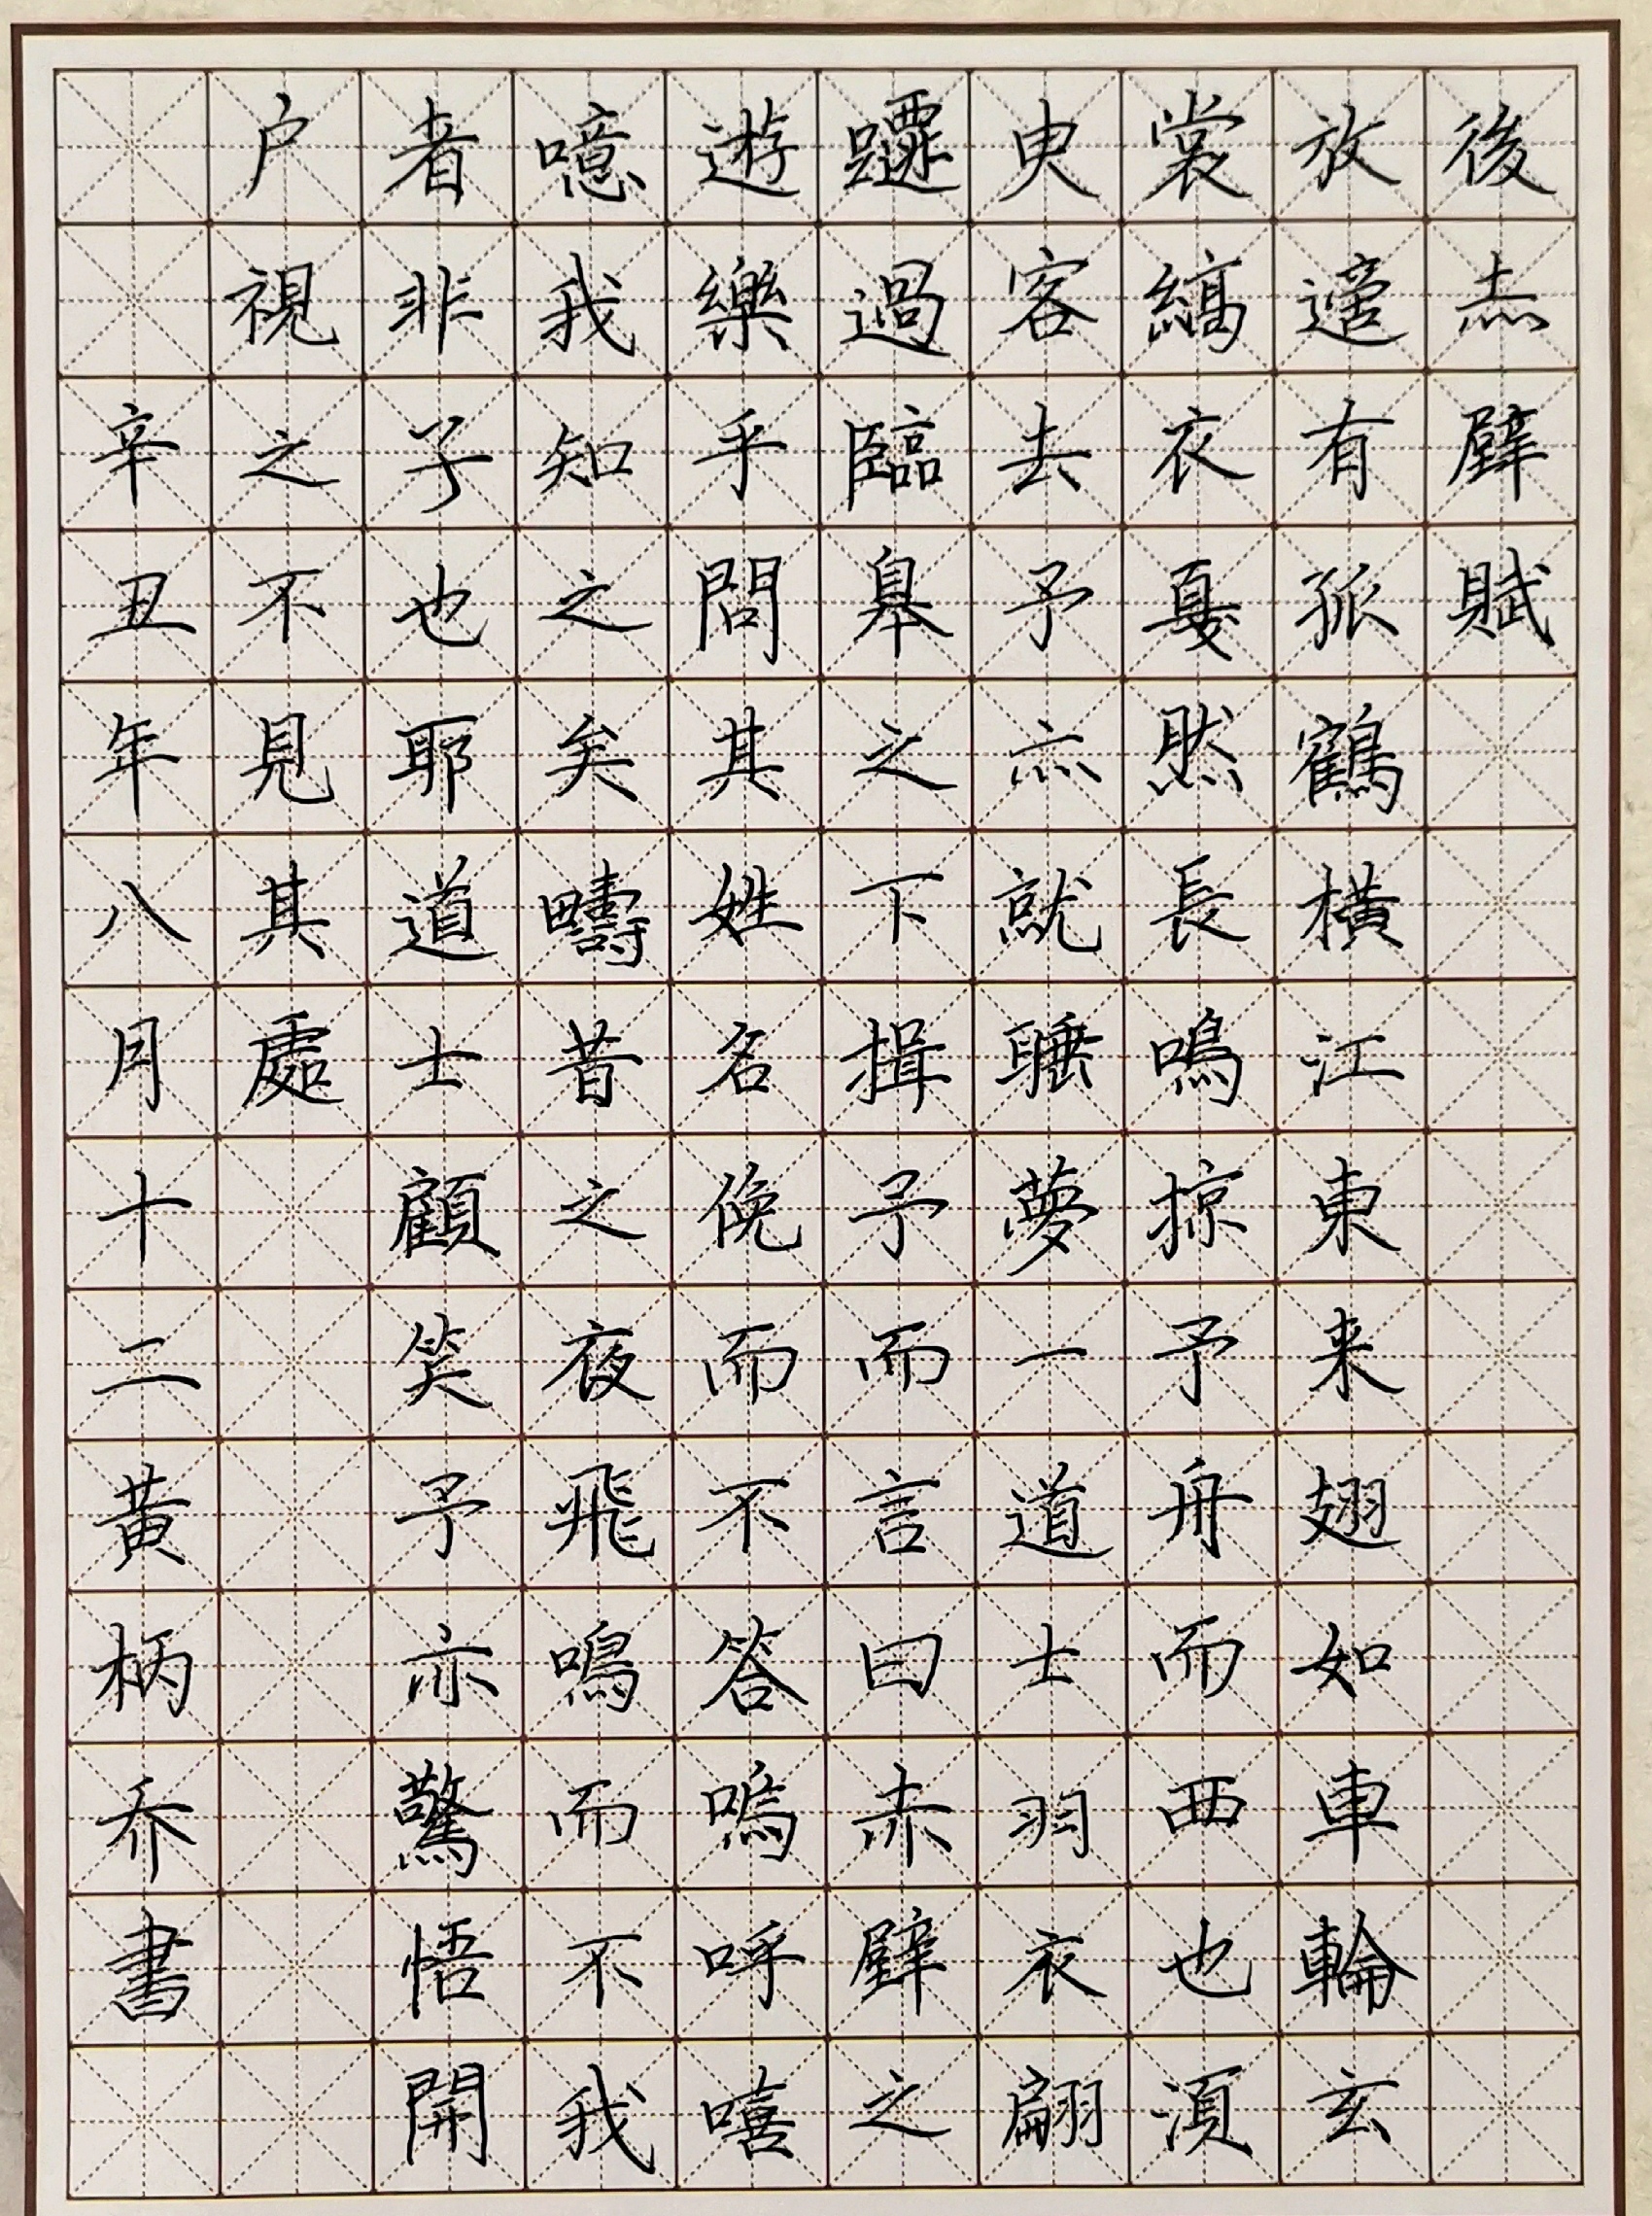 後赤壁賦
放適有孤鶴橫江東来翅如車輪玄
裳縞衣戛然長鳴掠予舟而西也須
臾客去予亦就睡夢一道士羽衣翩
躚過臨皋之下揖予而言曰赤壁之
遊樂乎問其姓名俛而不答嗚呼嘻
噫我知之矣疇昔之夜飛鳴而不我
者非子也耶道士顧笑予亦驚悟開
户視之不見其處
辛丑年八月十二黃柄乔書